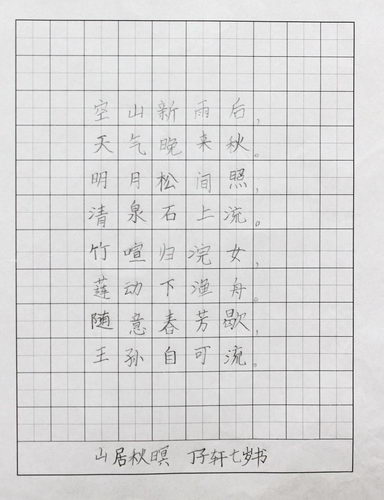 空山新雨后，
天气晚来秋。
明月松间照，
清泉石上流。
竹喧归浣女，
莲动下渔舟。
随意春芳歇，
王孙自可流。
山居秋暝 丁子轩七岁书